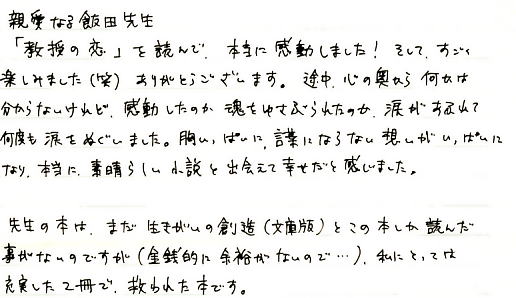 親愛なる飯田先生
「教授の恋」を読んで、本当に感動しました！そして、すごく
楽しみました（笑）ありがとうございます。途中、心の奥から何かは
分からないけれど、感動したのか魂をゆさぶられたのか、涙があふれて
何度も涙をぬぐいました。胸いっぱいに、言葉にならない想いがいっぱいに
なり、本当に素晴らしい小説と出会えて幸せだと感じました。
先生の本は、まだ生きがいの創造（文庫版）とこの本しか読んだ
事がないのですが（金銭的に余裕がないので…）、私にとっては
充実した2冊で、救われた本です。